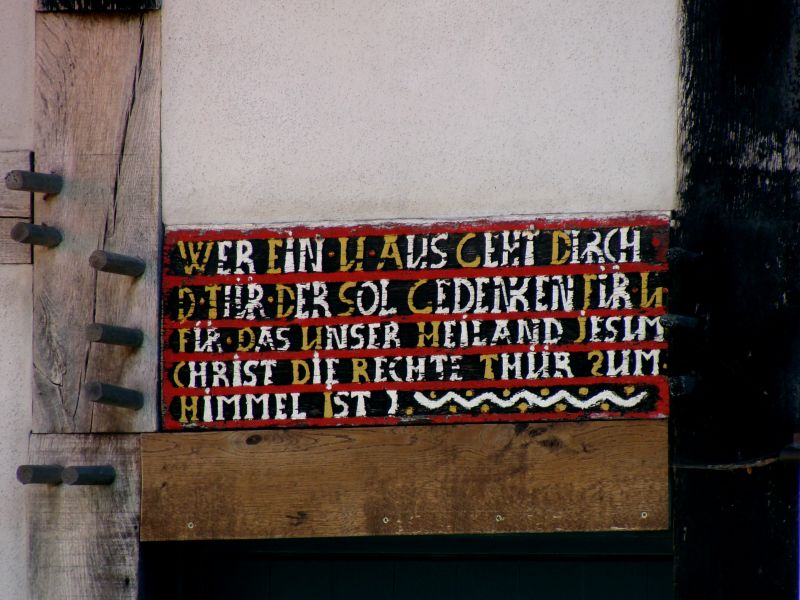 WER EIN · U · AUS GEHT DIRCH
D · TÜR · DER SOL GEDENKEN FÜR · U
FÜR · DAS UNSER HEILAND JESUM
CHRIST DIE RECHTE THÜR ZUM ·
HIMMEL IST